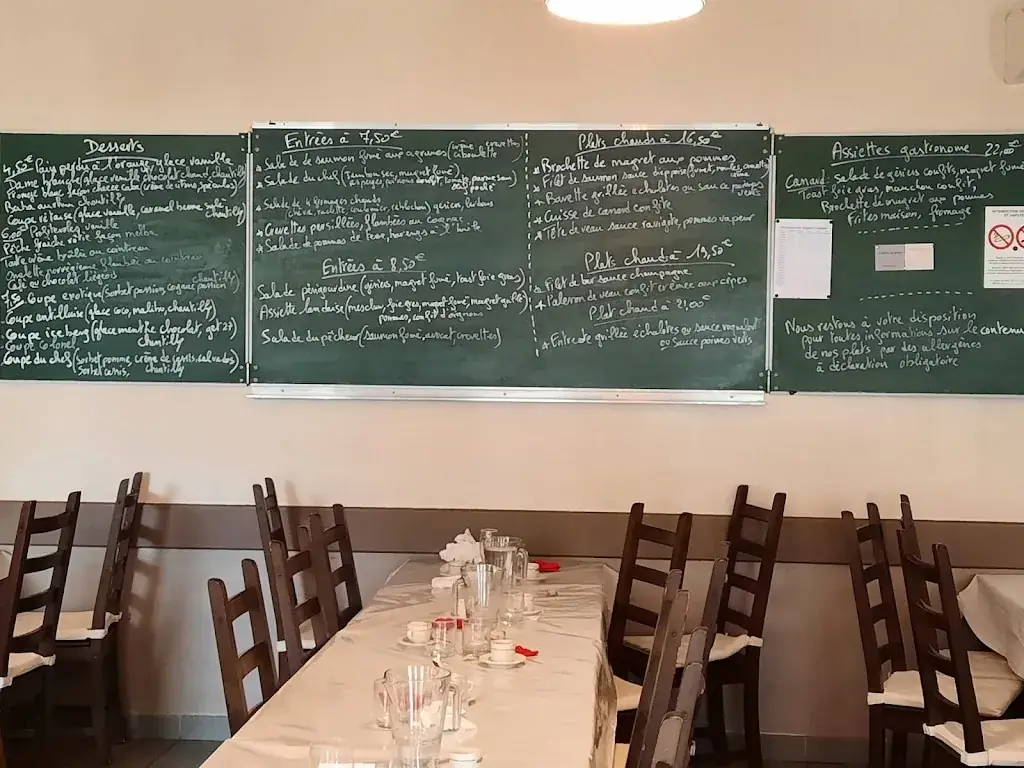 Desserts
4,50€ Pain perdu à l'orange, glace vanille
Dame blanche (glace vanille, chocolat chaud, chantilly)
Fromage blanc façon cheese cake (crème de citron, spéculos)
Baba au rhum chantilly
Coupe (glace vanille, caramel beurre salé, chantilly)
6,00
façon melba
Tarte
Omelette norvégienne flambée au cointreau
Café ou chocolat liégeois chantilly)
7,50 Coupe exotique (Sorbet passion, cognac passion
Coupe antillaise (glace coco, malibu, chantilly)
Coupe ice berg (glace menthe chocolat, get 27)
Coupe Colonel chantilly
Coupe du chef (Sorbet pomme, crème de cassis, calvados)
Sorbet cassis, chantilly
Entrées à 7,50€
Salade de saumon fumé aux agrumes (crème
ciboulette
Salade du chef (Jambon sec, magret fumé)
Salade de 4 fromages chauds
(chèvre, raclette, reblochon) gésiers, lardons
Crevettes persillées, flambées au cognac
Salade de pommes de terre, harengs à l'huile
Entrées à 8,50€
Salade périgourdine (gésiers, magret fumé, toast foie gras)
Assiette landaise (mesclun, foie gras, magret fumé, magret grillé)
pommes, confit d'oignons
Salade du pêcheur (saumon fumé, avocat crevettes)
Plats chauds à 16,50€
Brochette de magret aux pommes
Filet de saumon sauce dieppoise
Bavette grillée échalotes ou sauce
Cuisse de canard confite
Tête de veau sauce ravigote, pommes vapeur
Plats chauds à 19,50€
Filet de bar sauce champagne
Paleron de veau confit crémée aux cèpes
Plat chaud à 21,00€
Entrecôte grillée échalotes ou sauce roquefort
ou Sauce poivre verts
Assiettes gastronome 22,00€
Canard: Salade de gésiers confits, magret fumé
Toast foie gras, manchon confit,
Brochette de magret aux pommes
Frites maison, fromage
Nous restons à votre disposition
pour toutes informations sur le contenu
de nos plats par des allergènes
à déclaration obligatoire